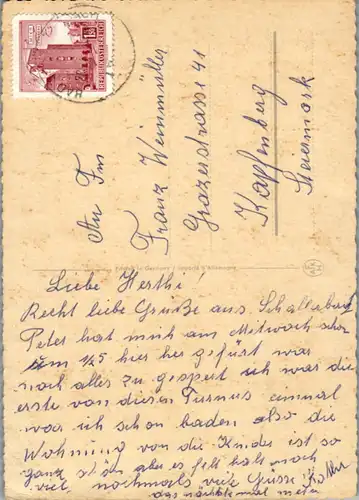 REPUBLIK ÖSTERREICH
An Fm
Franz Weinmüller
Grazerstrasse 41
Kapfenberg
Steiermark
Liebe Herthi!
Recht liebe Grüße aus Schallerbach
Peter hat mich am Mittwoch schon
um 1/25 hier her gefürt war
noch alles zu gespert ich war die
erste von diesen Turnus einmal
war ich schon baden also die
Wohnung von die Kinder ist so
ganz schön aber es felt halt noch
viel nochmals viele Grüsse
das nächste mal mehr